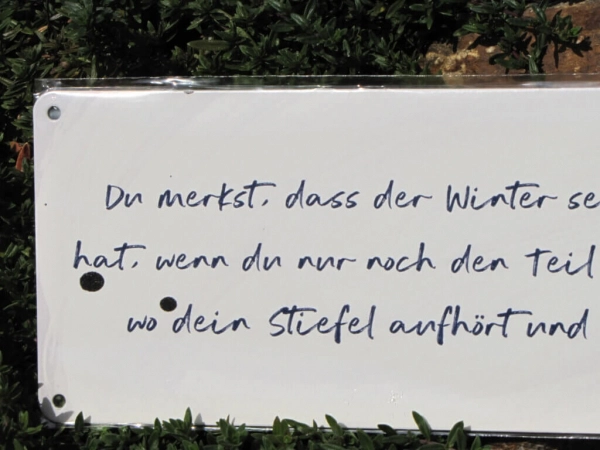 Du merkst, dass der Winter se
hat, wenn du nur noch den Teil
wo dein Stiefel aufhört und